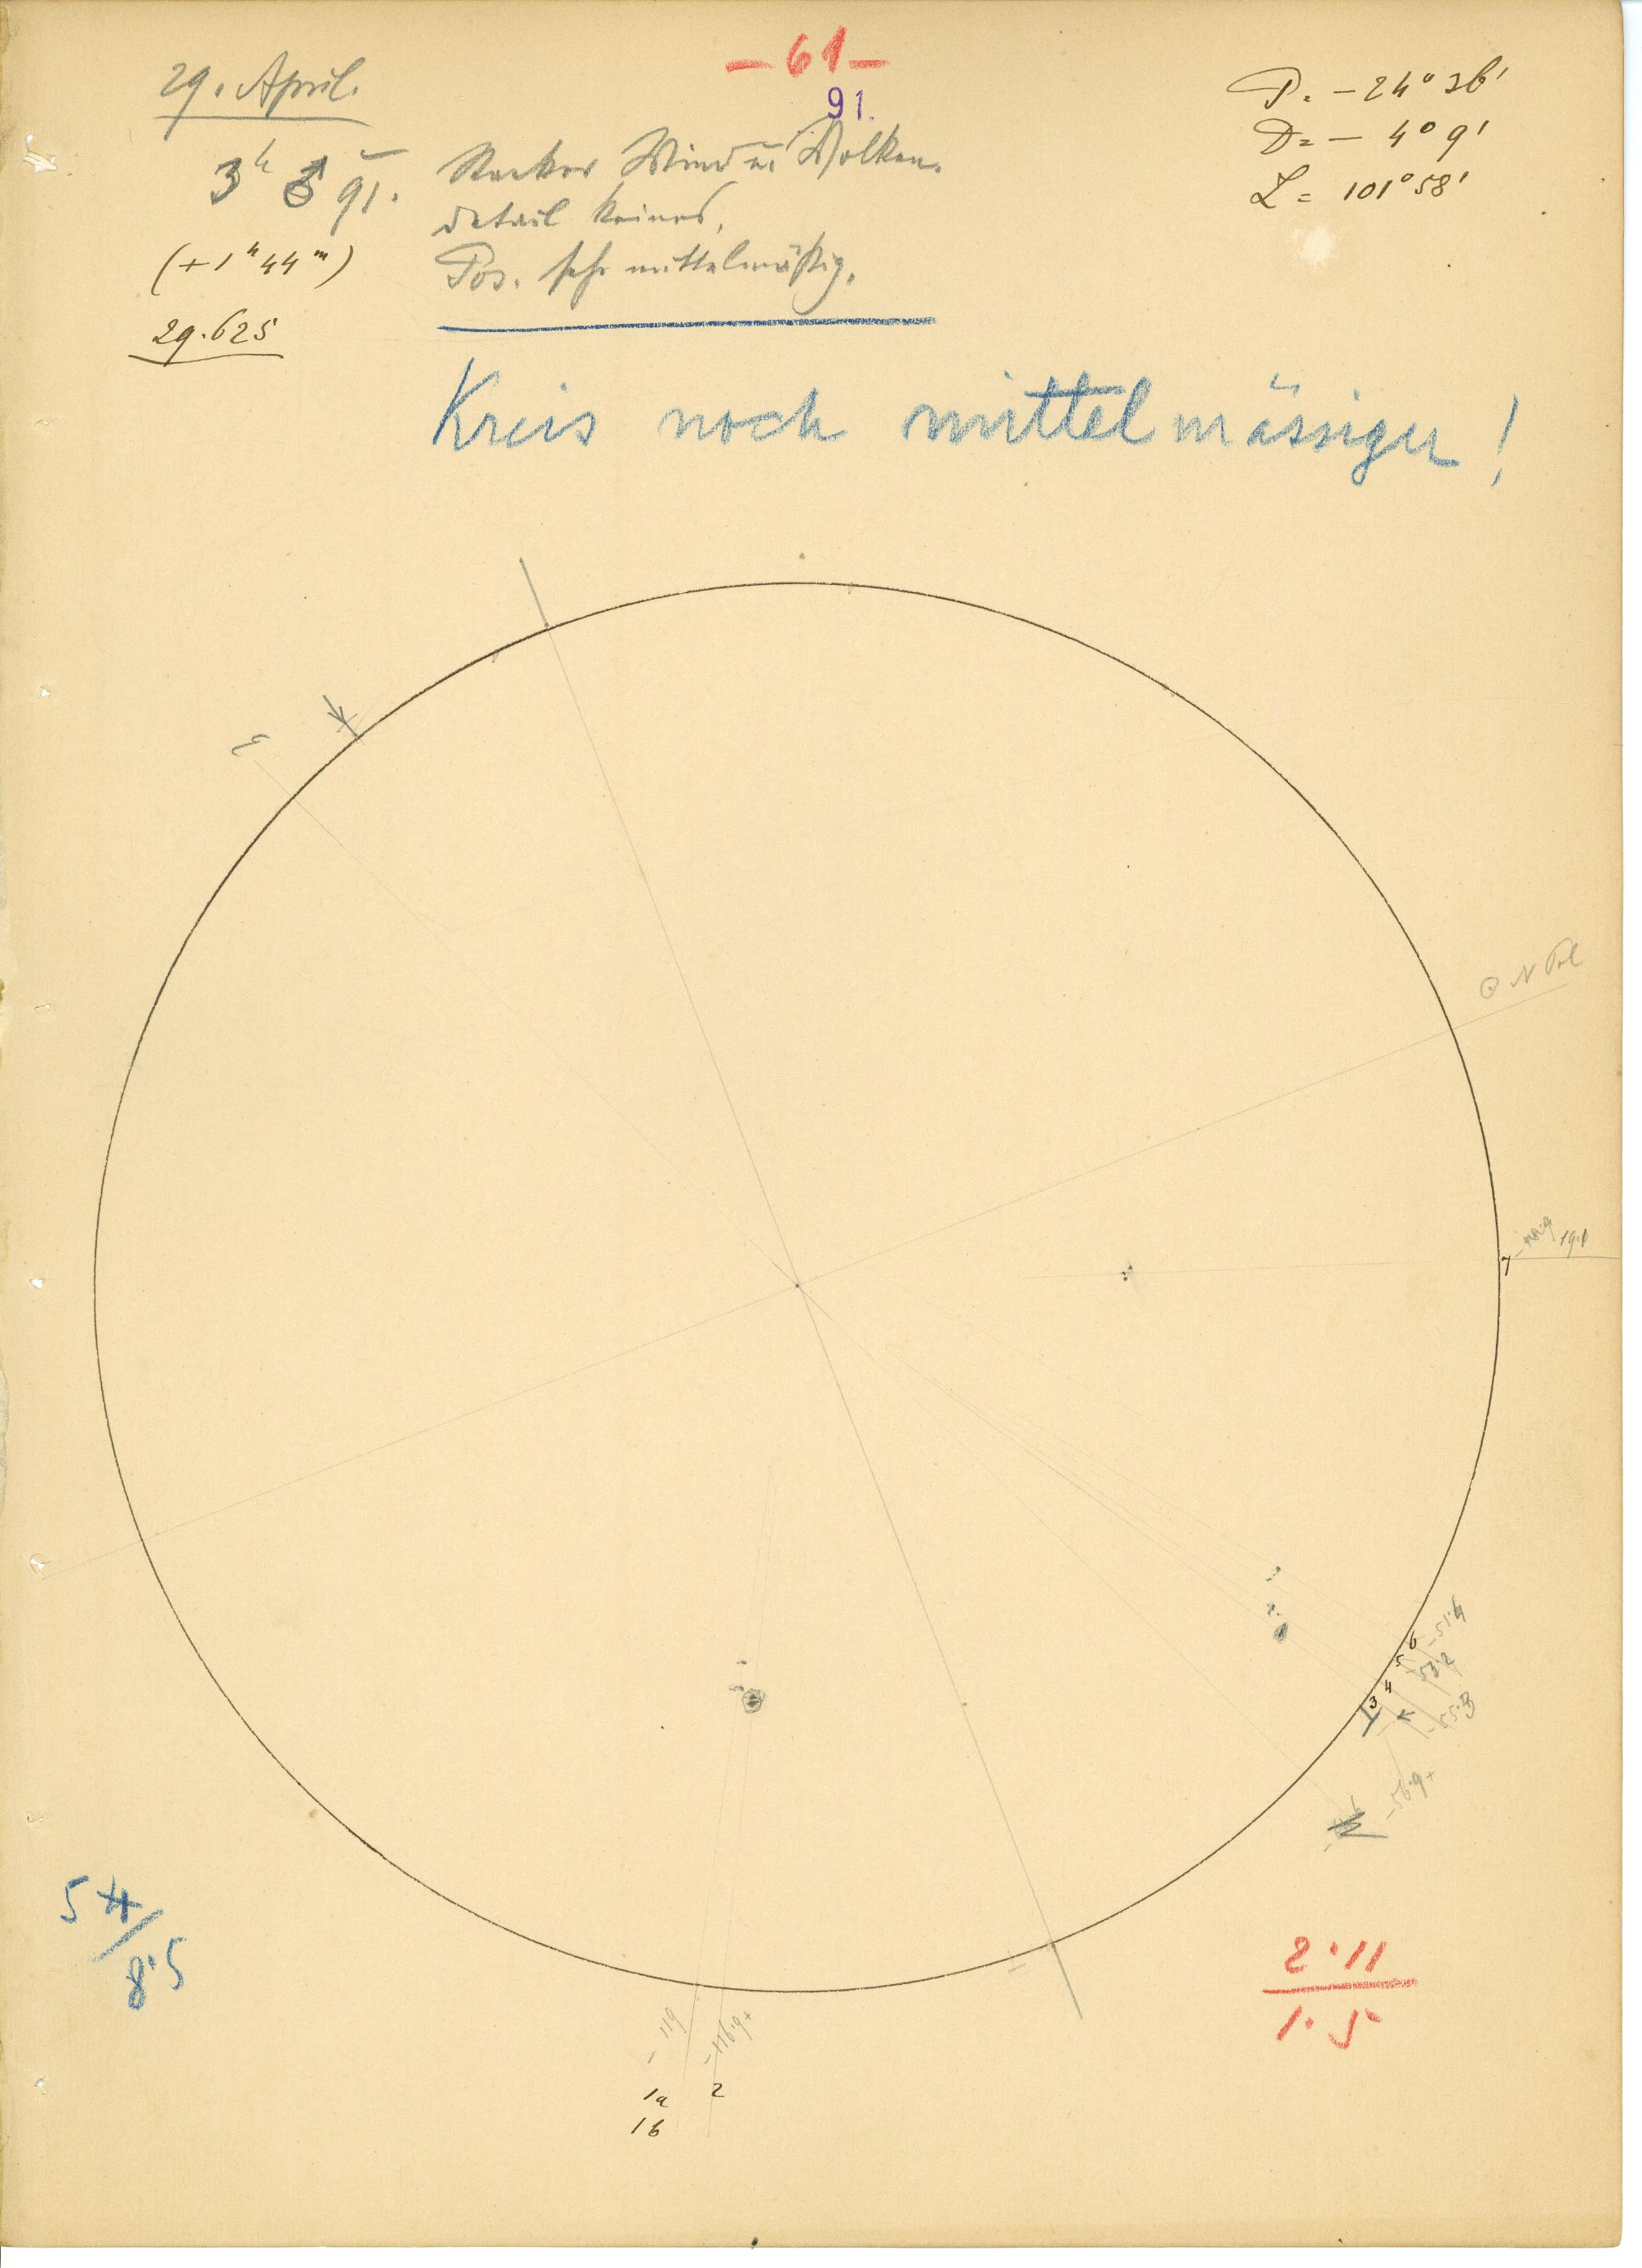 29. April.
— 61 —
91.
P. = – 24° 36'
D = – 4° 9'
L = 101° 58'
3h 91.
(+1h 44m)
29.625
Starker Wind u. Wolken.
detail keines,
Pos. sehr mittelmäßig.
Kreis noch mittelmässiger!
☉ N Pol
7
19.1
6
-51.4
5
-53.2
4
3
-55.3
-56.9+
5
8.5
2.11
1.5
-119
-116.9+
1a
2
1b